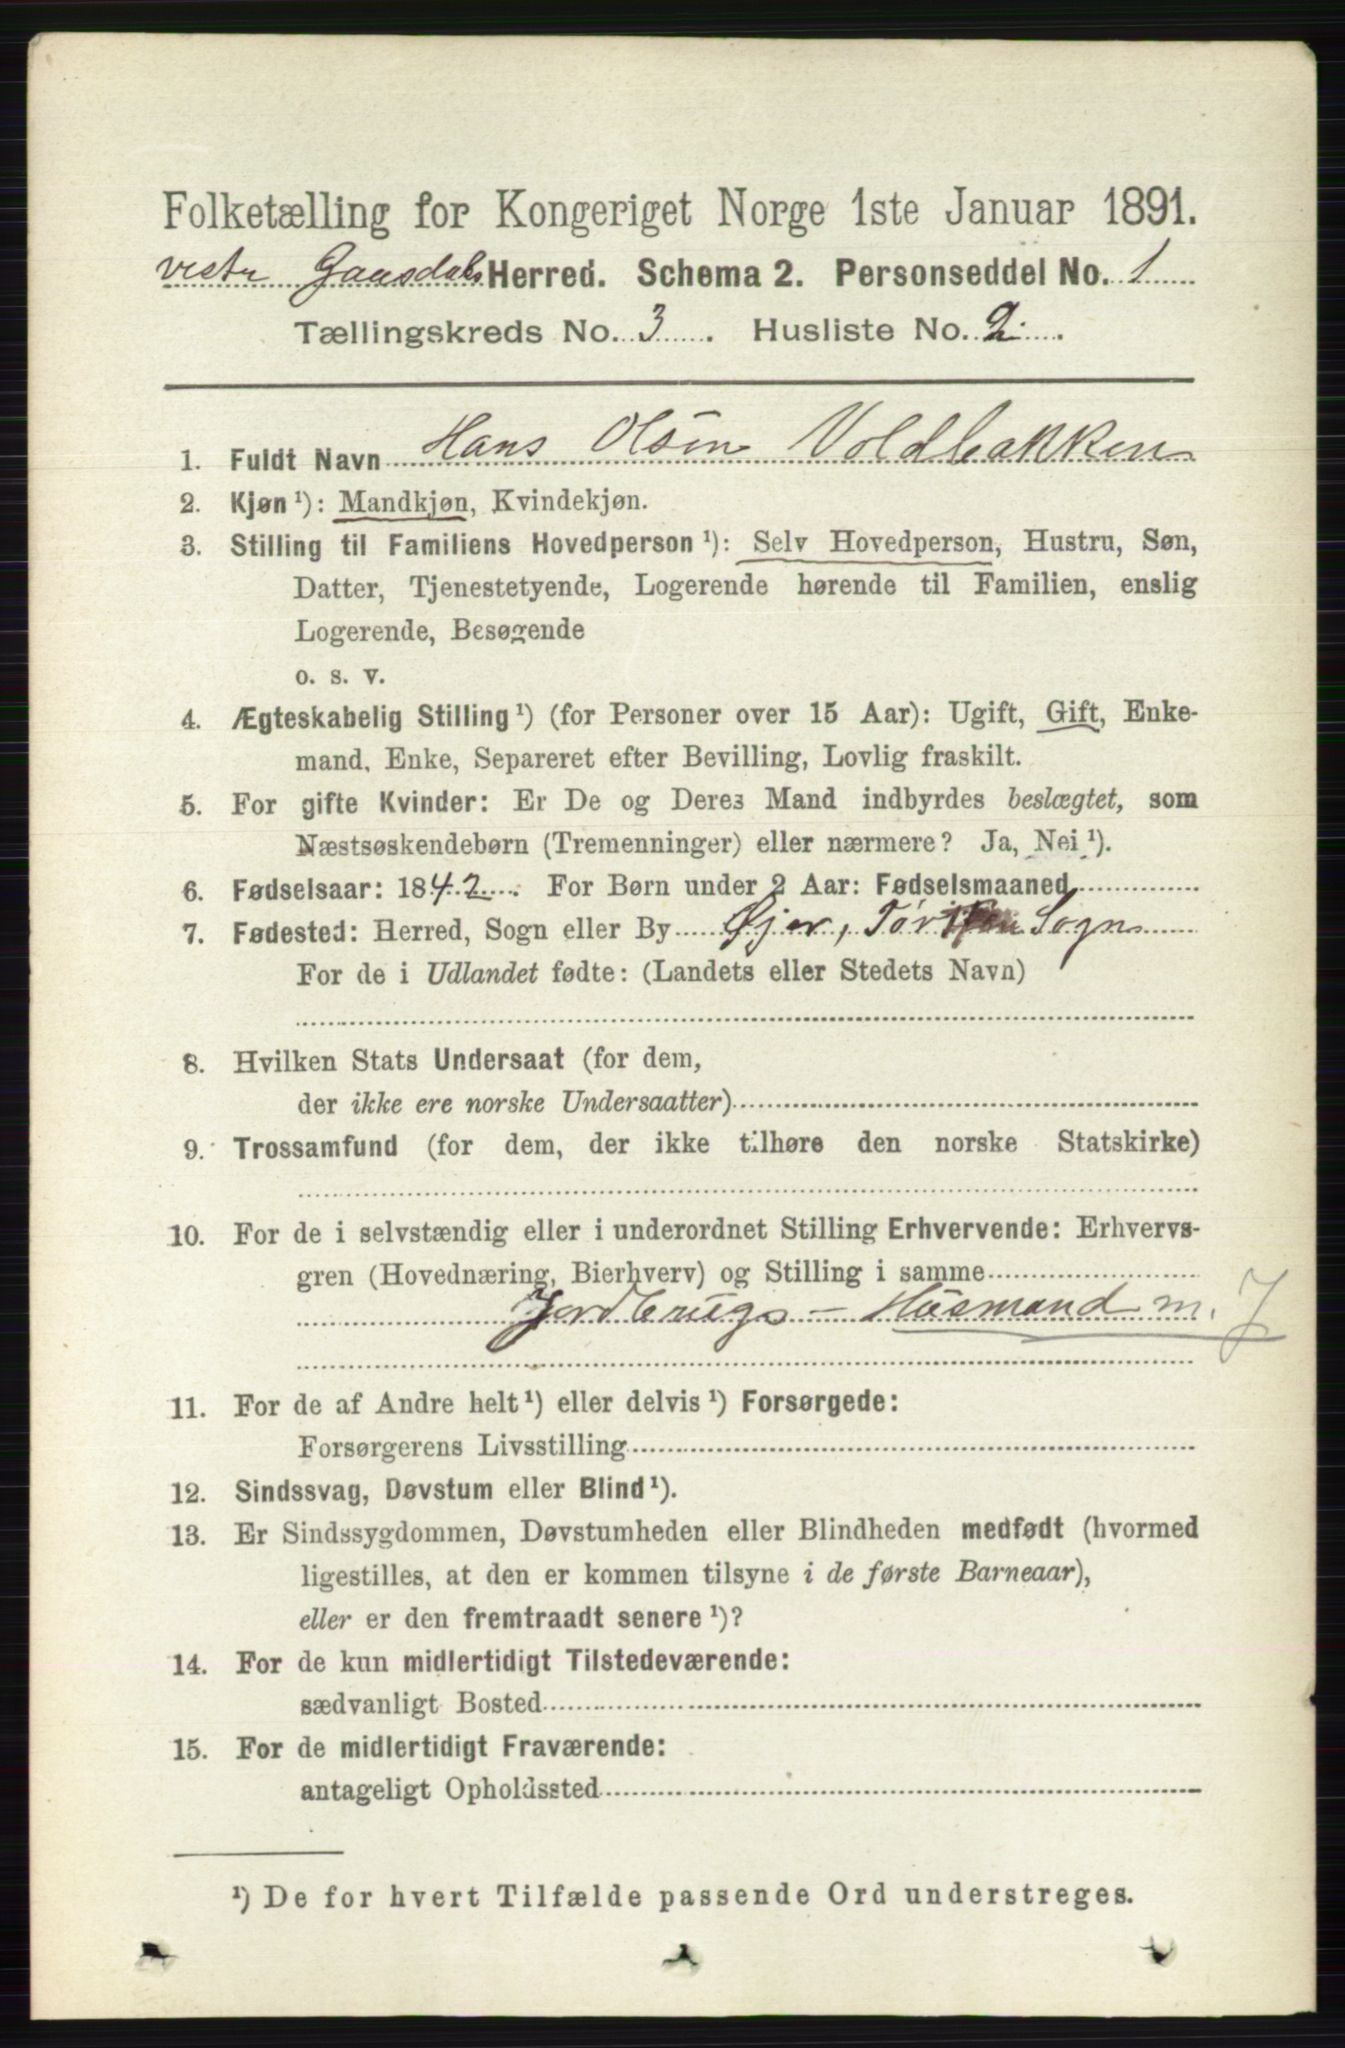 Folketælling for Kongeriget Norge 1ste Januar 1891.
vestre Gausdals Herred. Schema 2. Personseddel No. 1
Tællingskreds No. 3. Husliste No. 2.
1. Fuldt Navn Hans Olsen Voldbakken
2. Kjøn ¹): Mandkjøn, Kvindekjøn.
3. Stilling til Familiens Hovedperson ¹): Selv Hovedperson, Hustru, Søn,
Datter, Tjenestetyende, Logerende hørende til Familien, enslig
Logerende, Besøgende
o. s. v.
4. Ægteskabelig Stilling ¹) (for Personer over 15 Aar): Ugift, Gift, Enke-
mand, Enke, Separeret efter Bevilling, Lovlig fraskilt.
5. For gifte Kvinder: Er De og Deres Mand indbyrdes beslægtet, som
Næstsøskendebørn (Tremenninger) eller nærmere? Ja, Nei ¹).
6. Fødselsaar: 1842. For Børn under 2 Aar: Fødselsmaaned
7. Fødested: Herred, Sogn eller By Øjer, Sogn
For de i Udlandet fødte: (Landets eller Stedets Navn)
8. Hvilken Stats Undersaat (for dem,
der ikke ere norske Undersaatter)
9. Trossamfund (for dem, der ikke tilhøre den norske Statskirke)
10. For de i selvstændig eller i underordnet Stilling Erhvervende: Erhvervs-
gren (Hovednæring, Bierhverv) og Stilling i samme
Jordbrugs - Husmand m. J
11. For de af Andre helt ¹) eller delvis ¹) Forsørgede:
Forsørgerens Livsstilling
12. Sindssvag, Døvstum eller Blind ¹).
13. Er Sindssygdommen, Døvstumheden eller Blindheden medfødt (hvormed
ligestilles, at den er kommen tilsyne i de første Barneaar),
eller er den fremtraadt senere ¹)?
14. For de kun midlertidigt Tilstedeværende:
sædvanligt Bosted
15. For de midlertidigt Fraværende:
antageligt Opholdssted
¹) De for hvert Tilfælde passende Ord understreges.